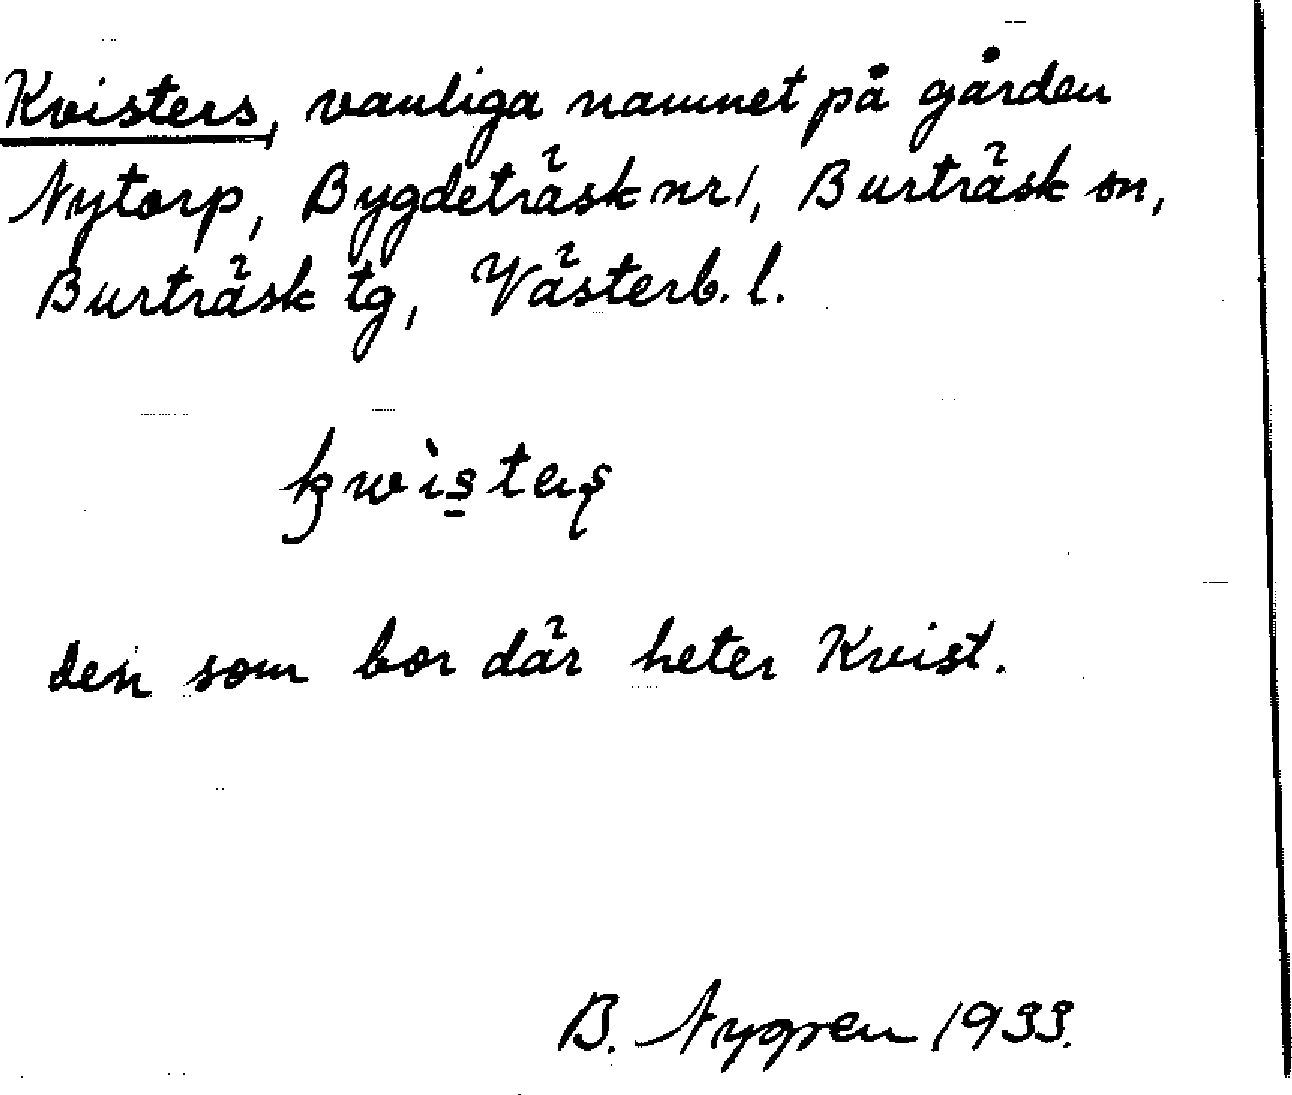 Kvisters, vanliga namnet på gården
Nytorp, Bygdeträsk nr 1, Burträsk sn,
Burträsk tg, Västerb. l.
kwìsters
den som bor där heter Kvist.
B. Nygren 1933.